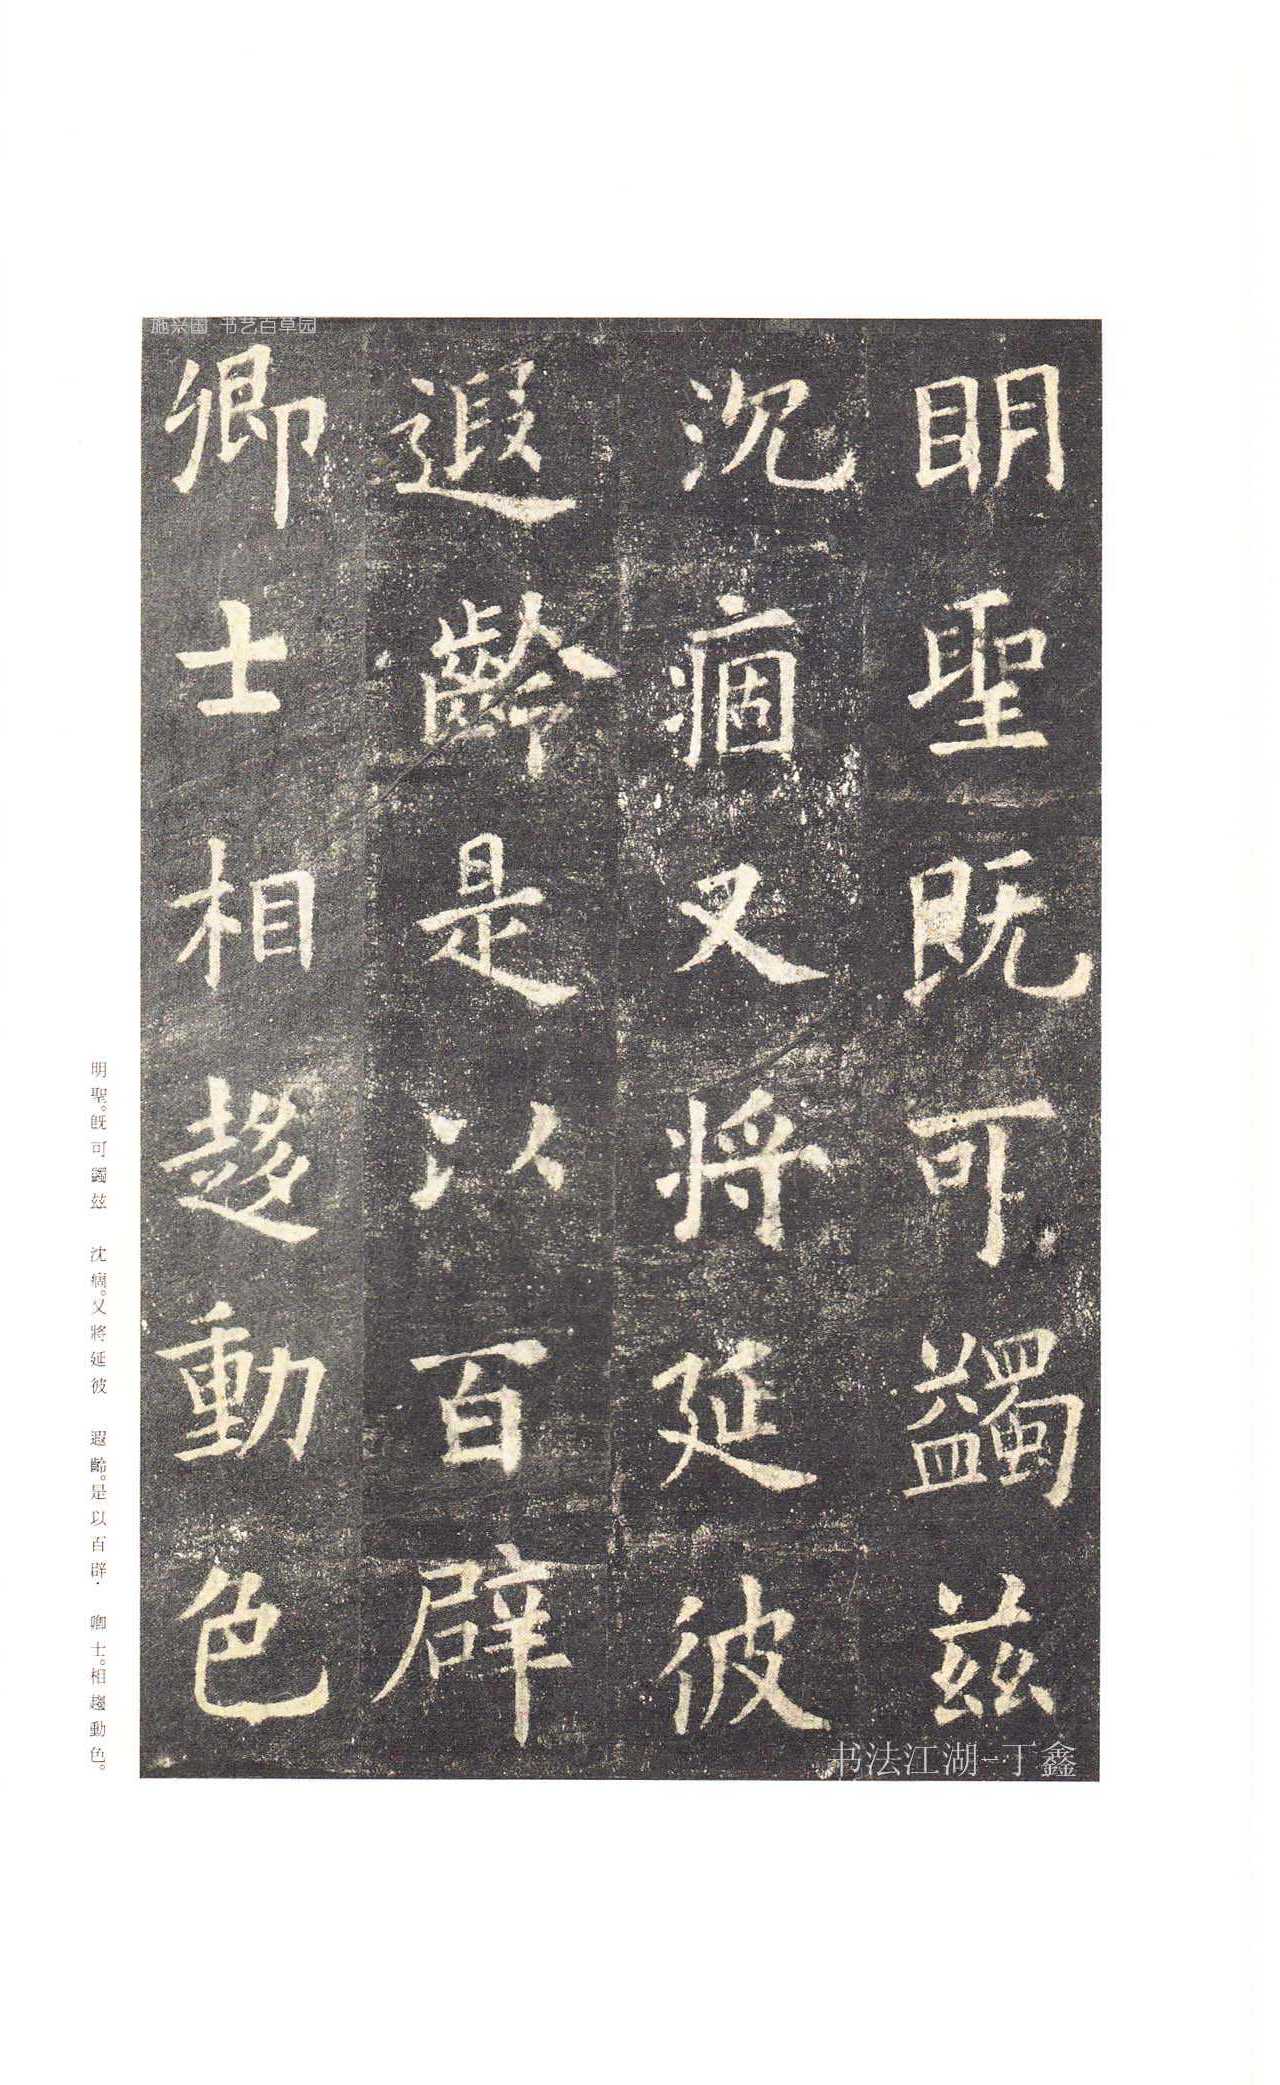 明聖既可蠲兹
沉痼又将延彼
遐齡是以百辟
卿士相趍動色
明聖。既可蠲兹 沈痼。又將延彼 遐齡。是以百辟· 卿士。相趨動色。
施兴国 书艺百草园
书法江湖-丁鑫